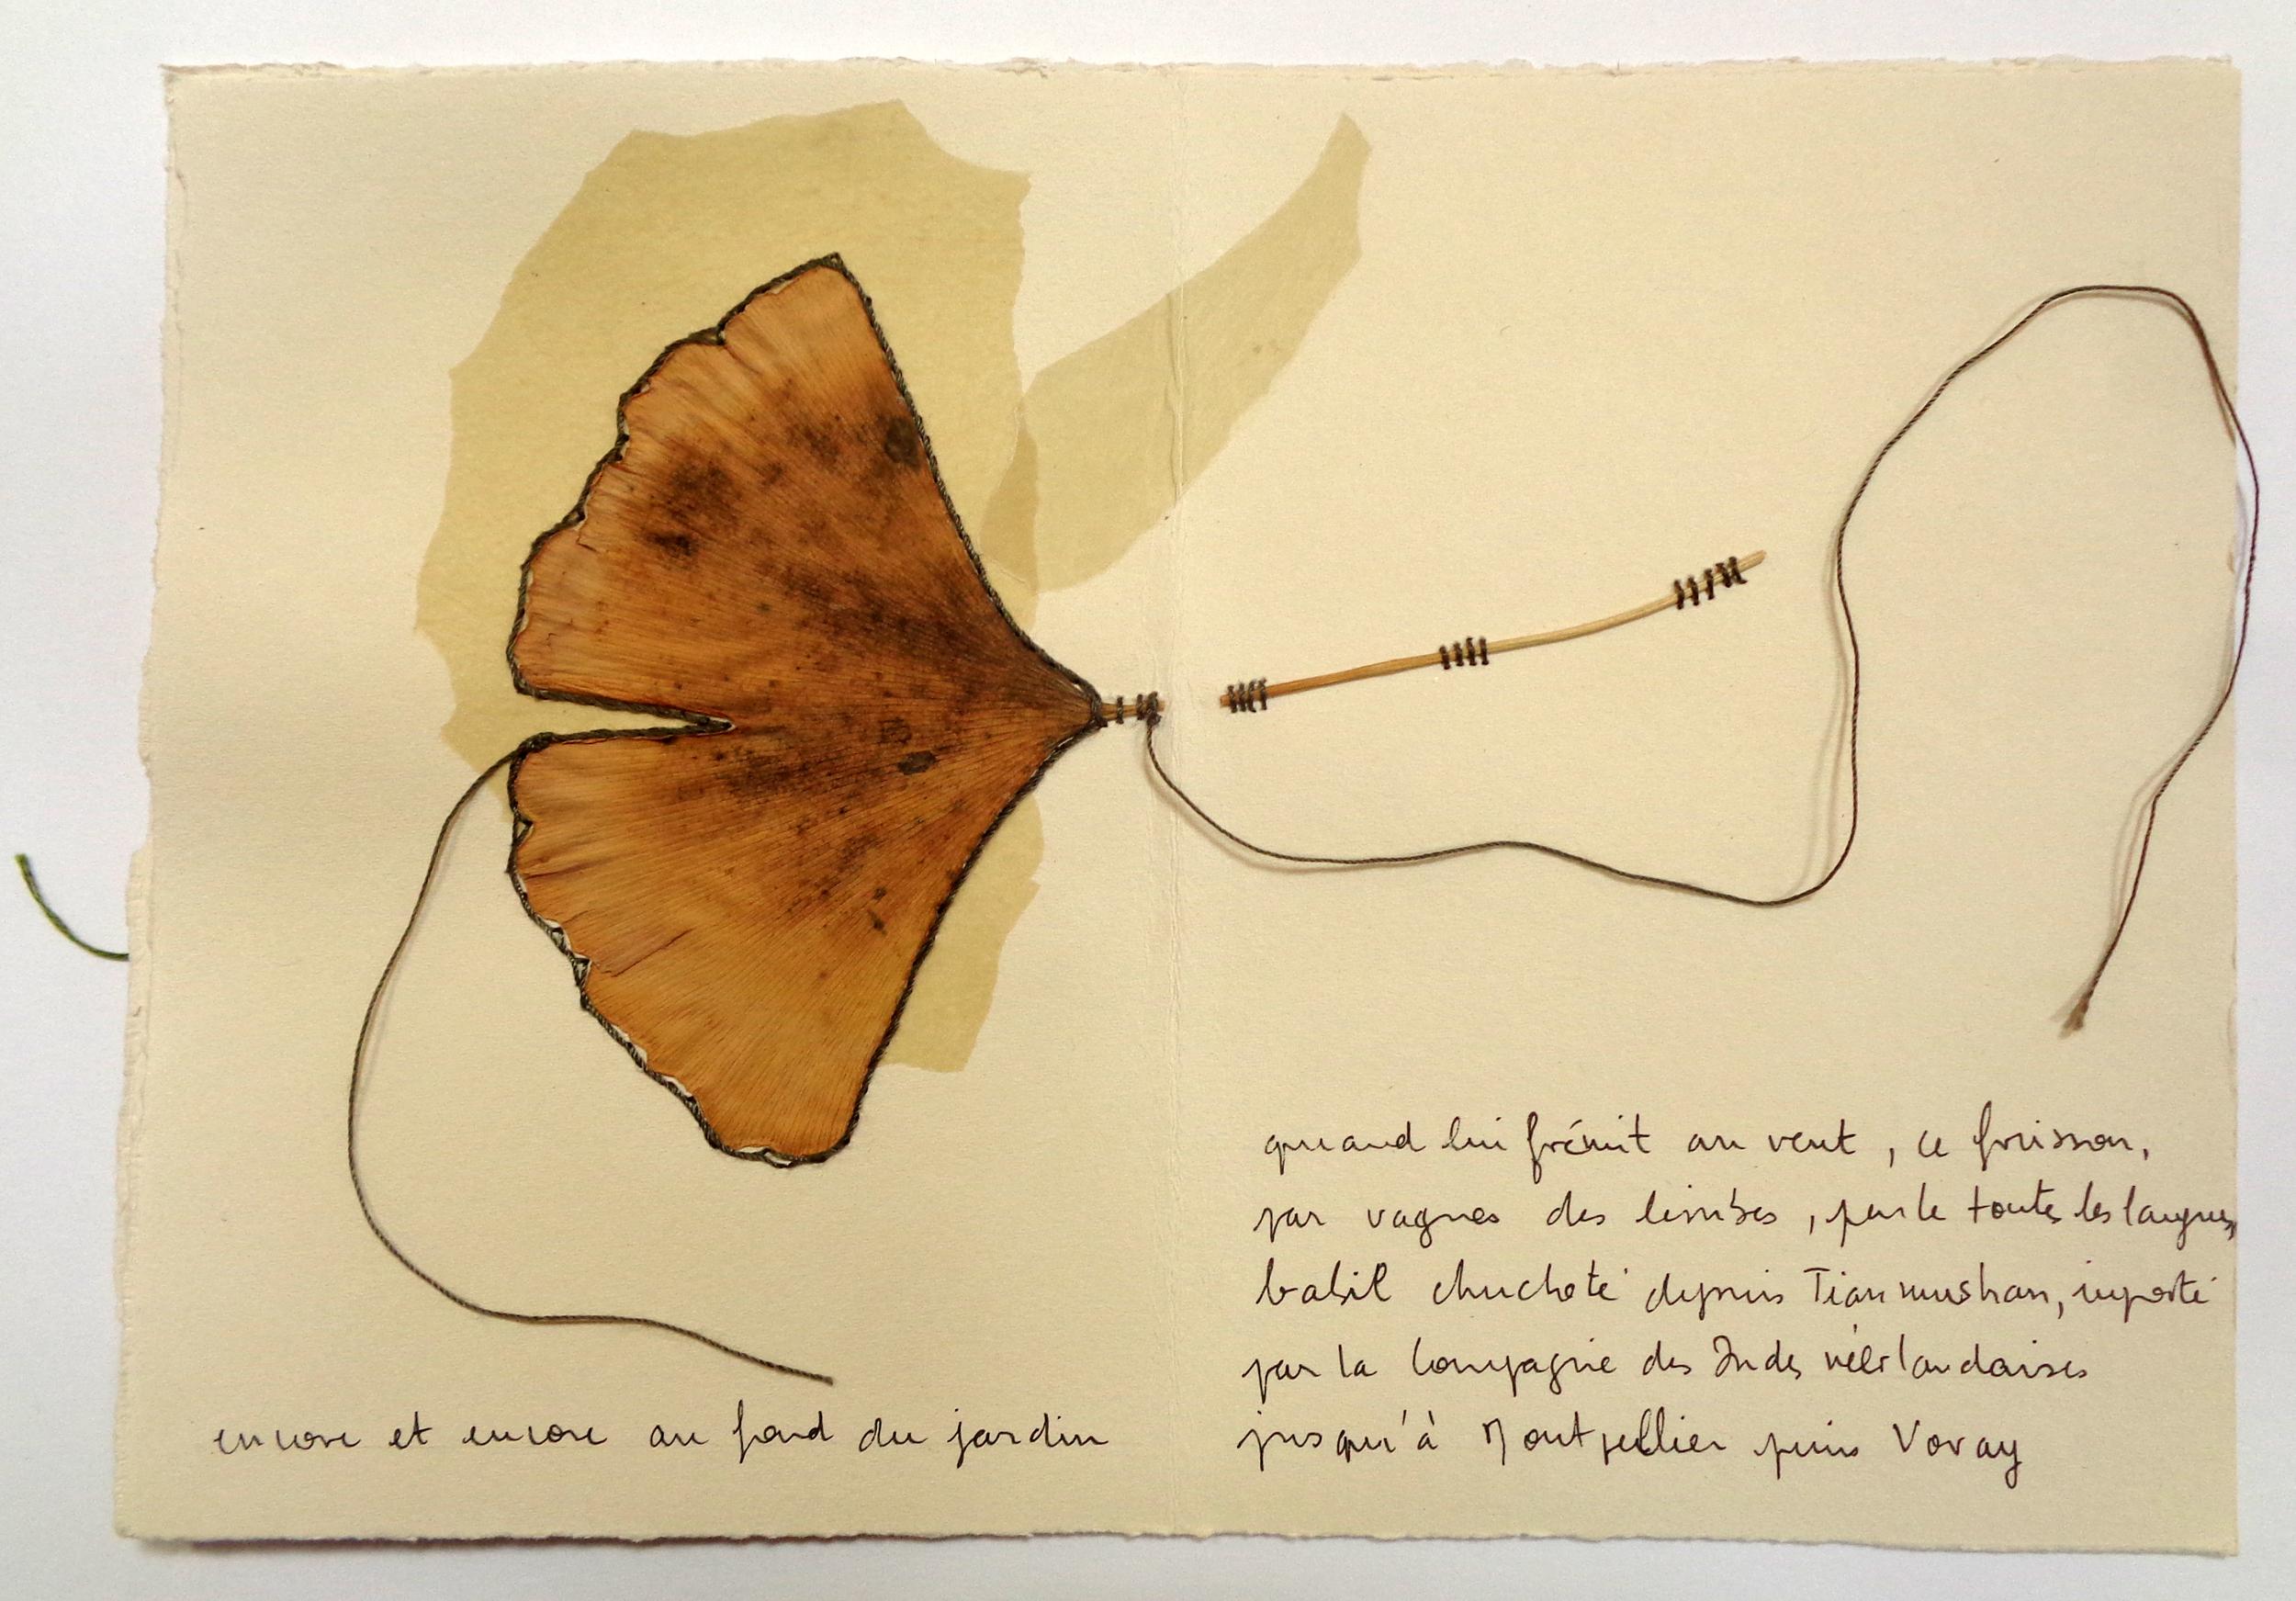 encore et encore au fond du jardin
quand lui frémit au vent, ce frisson,
par vagues des limbes, parle toutes les langues,
babil chuchoté depuis Tianmushan, importé
par la Compagnie des Indes néerlandaises
jusqu'à Montpellier puis Voray